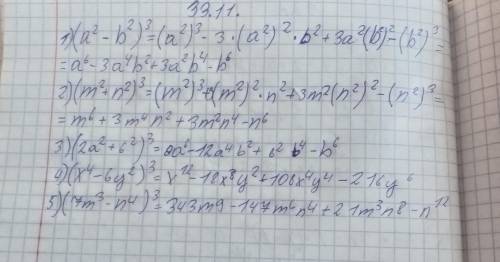 33.11.
1) (a² - b²)³ = (a²)³ - 3 · (a²)² · b² + 3a²(b²)² - (b²)³ =
= a⁶ - 3a⁴b² + 3a²b⁴ - b⁶
2) (m² + n²)³ = (m²)³ + (m²)² · n² + 3m²(n²)² - (n²)³ =
= m⁶ + 3m⁴n² + 3m²n⁴ - n⁶
3) (2a² + b²)³ = 8a⁶ - 12a⁴b² + 6² b⁴ - b⁶
4) (x⁴ - 6y²)³ = x¹² - 18x⁸y² + 108x⁴y⁴ - 216y⁶
5) (7m³ - n⁴)³ = 343m9 - 147m⁶n⁴ + 21m³n⁸ - n¹²